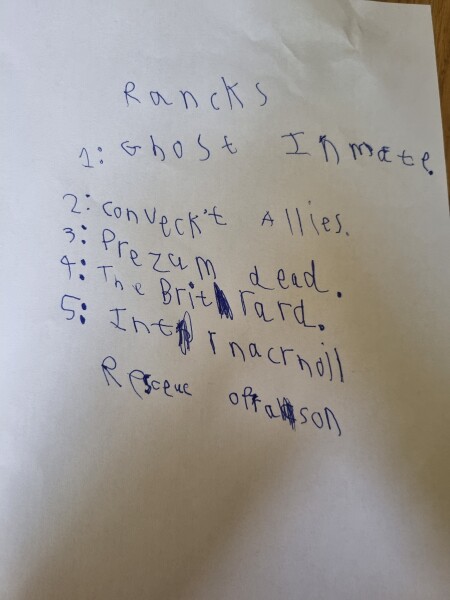 Rancks
1: Ghost Inmate.
2: conveck't Allies.
3: Prezum dead.
4: The Britrard.
5: Int rnacrnoill
Resceue offason